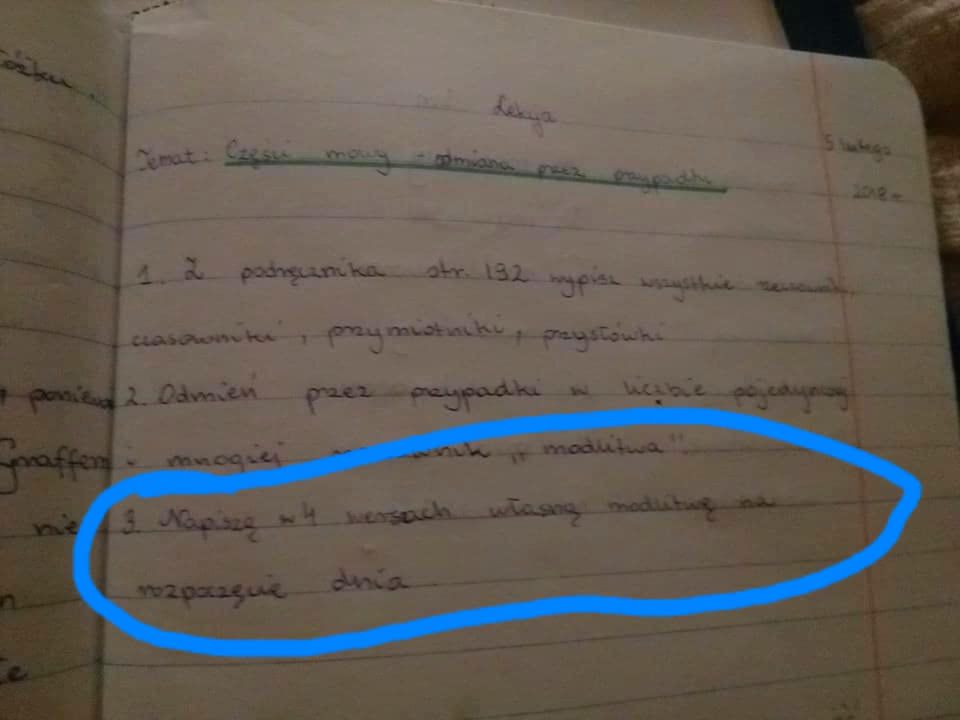 Lekcja
5 lutego
2018 r
Temat: Części mowy - odmiana przez przypadki
1. Z podręcznika str. 192 wypisz wszystkie
czasowniki, przymiotniki, przysłówki
2. Odmień przez przypadki w liczbie pojedynczej
i mnogiej "modlitwa".
3. Napiszę w 4 wersach własną modlitwę na
rozpoczęcie dnia